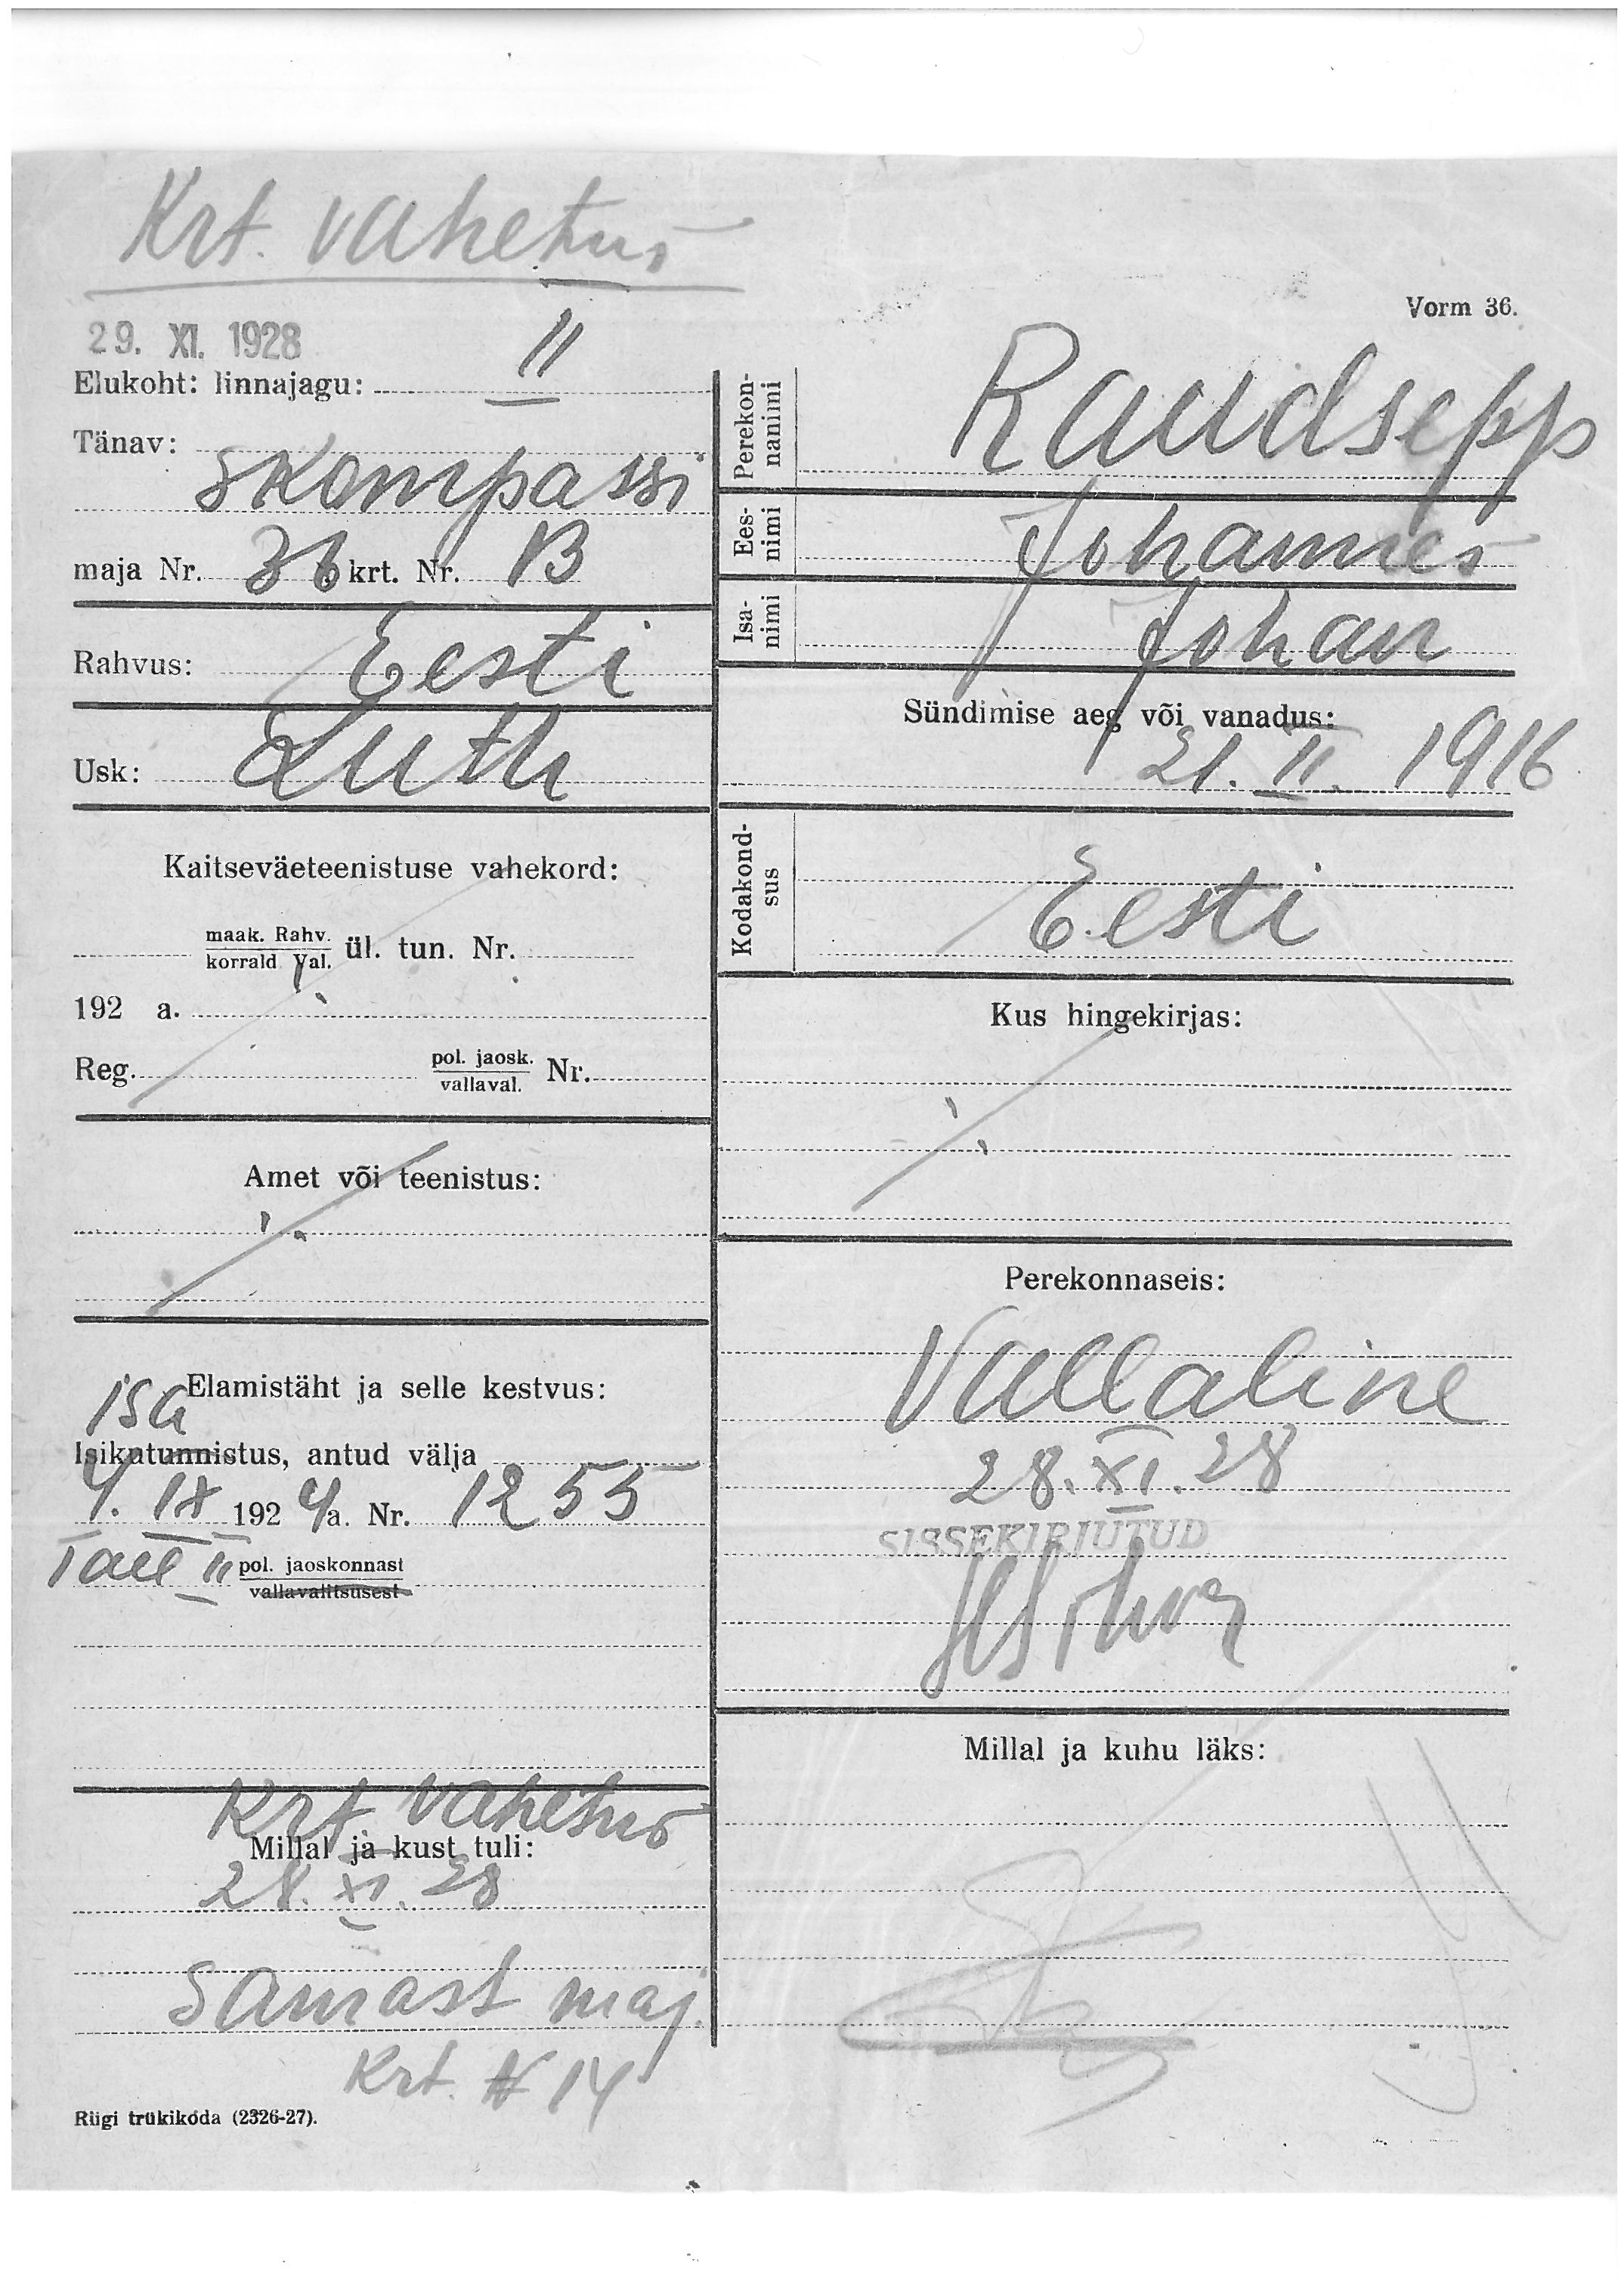 Krt. vahetus
Vorm 36.
29. XI. 1928
Elukoht: linnajagu: II
Tänav:
S Kompassi
maja Nr. 36 krt. Nr. 13
Rahvus: Eesti
Usk: Luth
Kaitseväeteenistuse vahekord:
maak. Rahv.
korrald Val. ül. tun. Nr.
192 a.
Reg. pol. jaosk.
vallaval. Nr.
Amet või teenistus:
Elamistäht ja selle kestvus:
isa
Isikutunnistus, antud välja
4. IX 1924 a. Nr. 1255
Tall II pol. jaoskonnast
vallavalitsusest
Krt. vahetus
Millal ja kust tuli:
28. XI. 28
Samast maj.
Krt. N 14
Riigi trükikoda (2326-27).
Perekon-
nanimi Raudsepp
Ees-
nimi Johannes
Isa-
nimi Johan
Sündimise aeg või vanadus:
21. II. 1916
Kodakond-
sus Eesti
Kus hingekirjas:
Perekonnaseis:
Vallaline
28. XI. 28
SISSEKIRJUTUD
Millal ja kuhu läks: